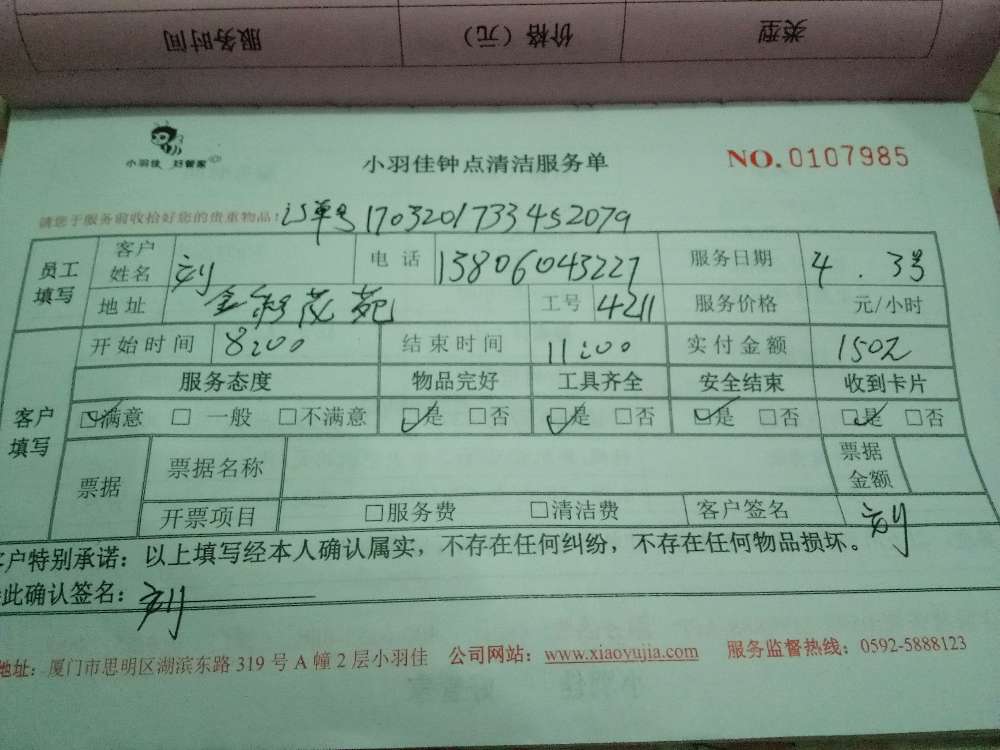 服务时间 价格（元） 类型
小羽佳 好管家
小羽佳钟点清洁服务单
NO.0107985
请您于服务前收拾好您的贵重物品：订单号1703201733452079
员工填写 客户姓名 刘 电话 13806043227 服务日期 4.3号
地址 金 茂苑 工号 4211 服务价格 元/小时
客户填写 开始时间 8:00 结束时间 11:00 实付金额 150元
服务态度 物品完好 工具齐全 安全结束 收到卡片
☑满意 □一般 □不满意 ☑是 □否 ☑是 □否 ☑是 □否 ☑是 □否
票据 票据名称 票据金额
开票项目 □服务费 □清洁费 客户签名 刘
客户特别承诺：以上填写经本人确认属实，不存在任何纠纷，不存在任何物品损坏。
此确认签名：刘
地址：厦门市思明区湖滨东路319号A幢2层小羽佳 公司网站：www.xiaoyujia.com 服务监督热线：0592-5888123